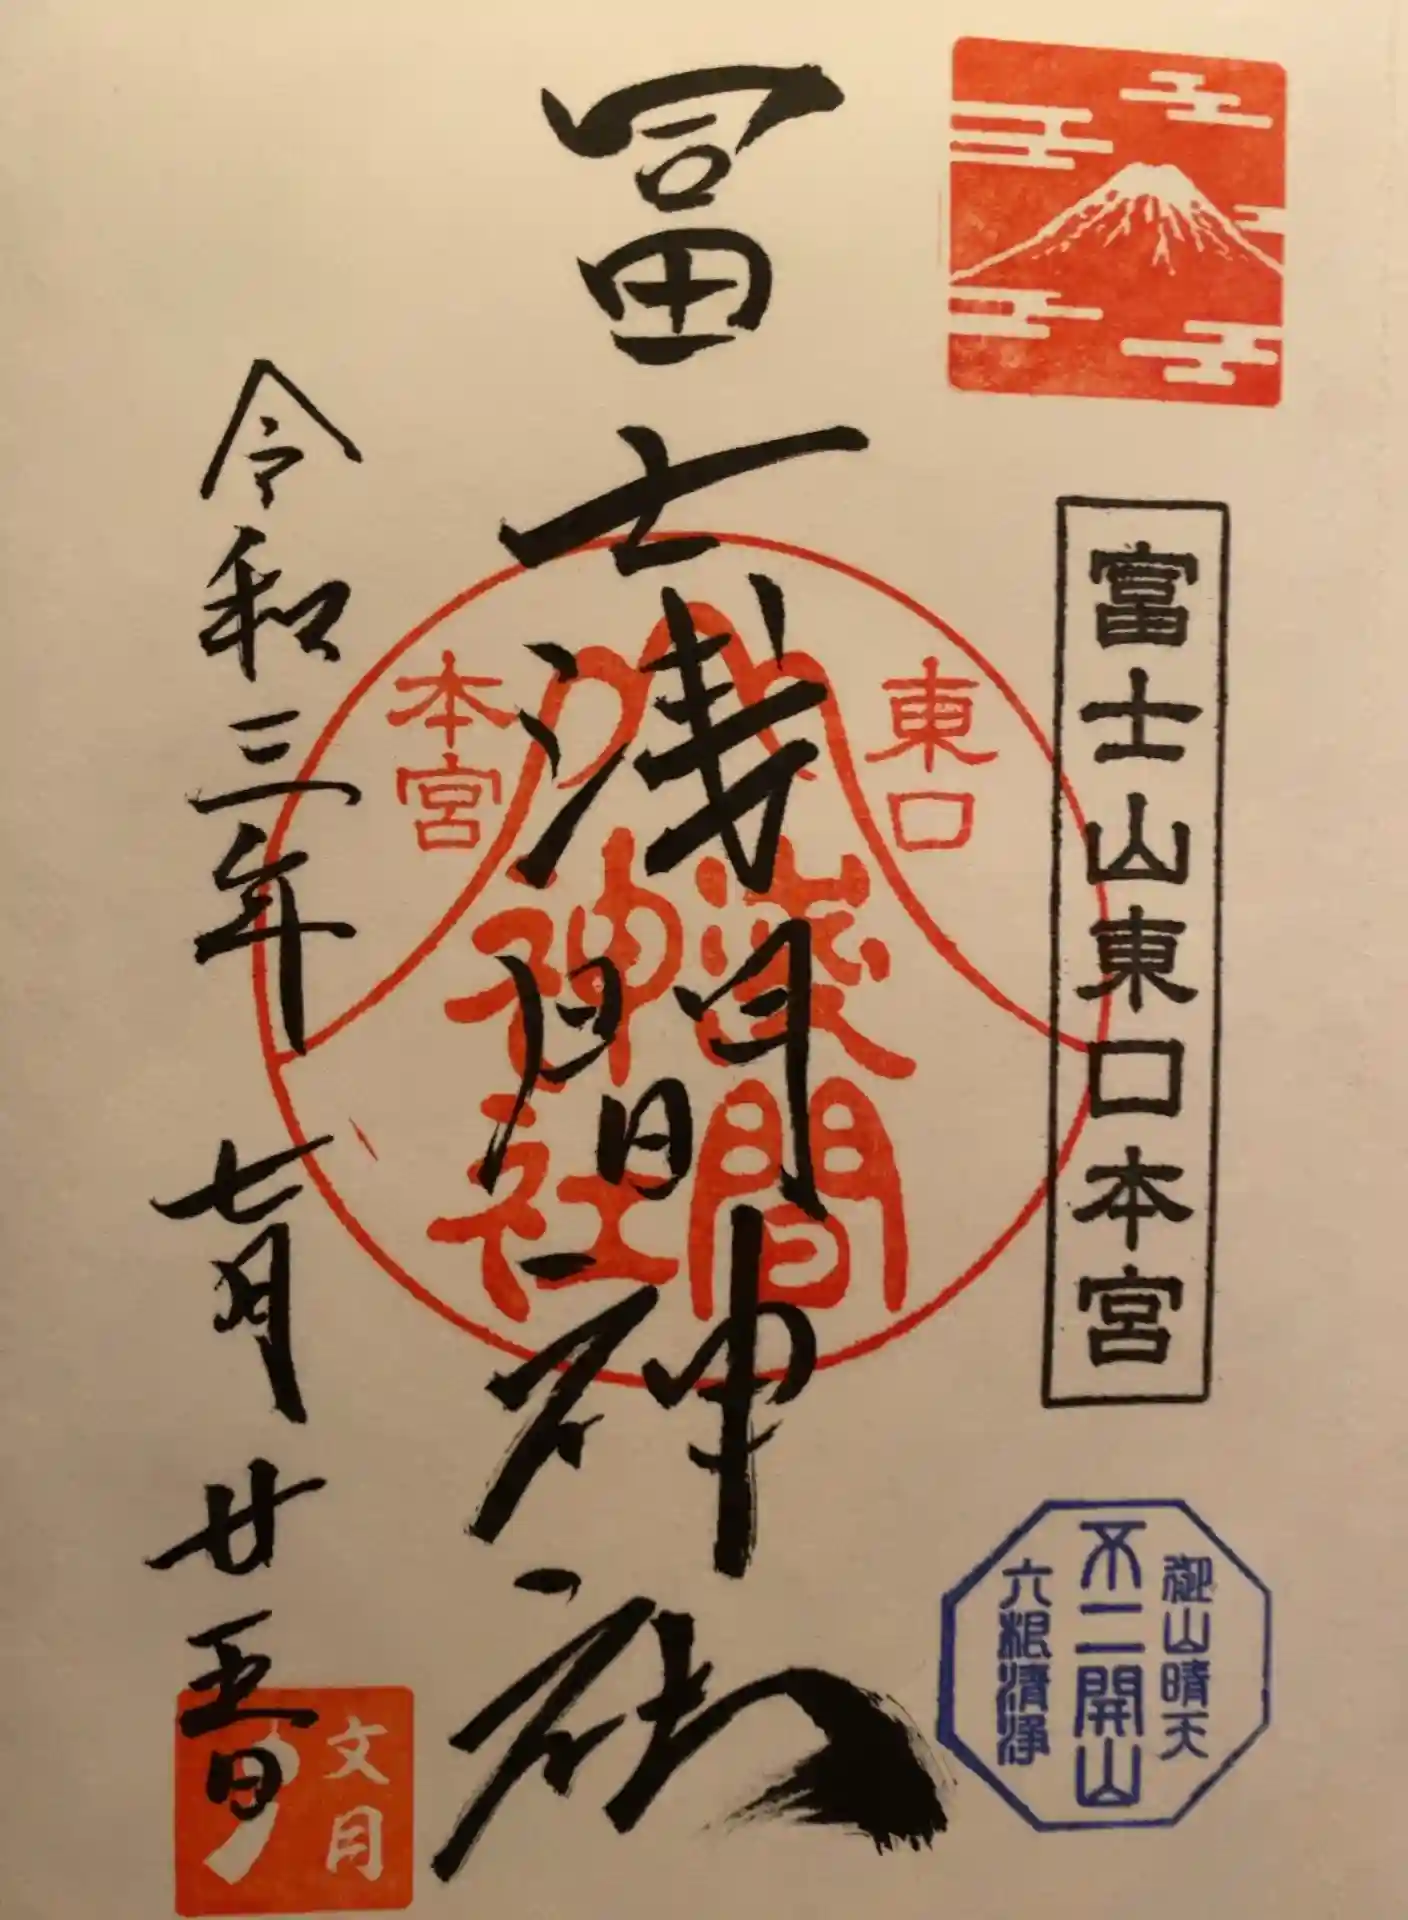 富士山東口本宮
冨士浅間神社
東口
本宮
浅間
神社
令和三年 七月 廿五日
御山晴天
不二開山
六根清浄
文月